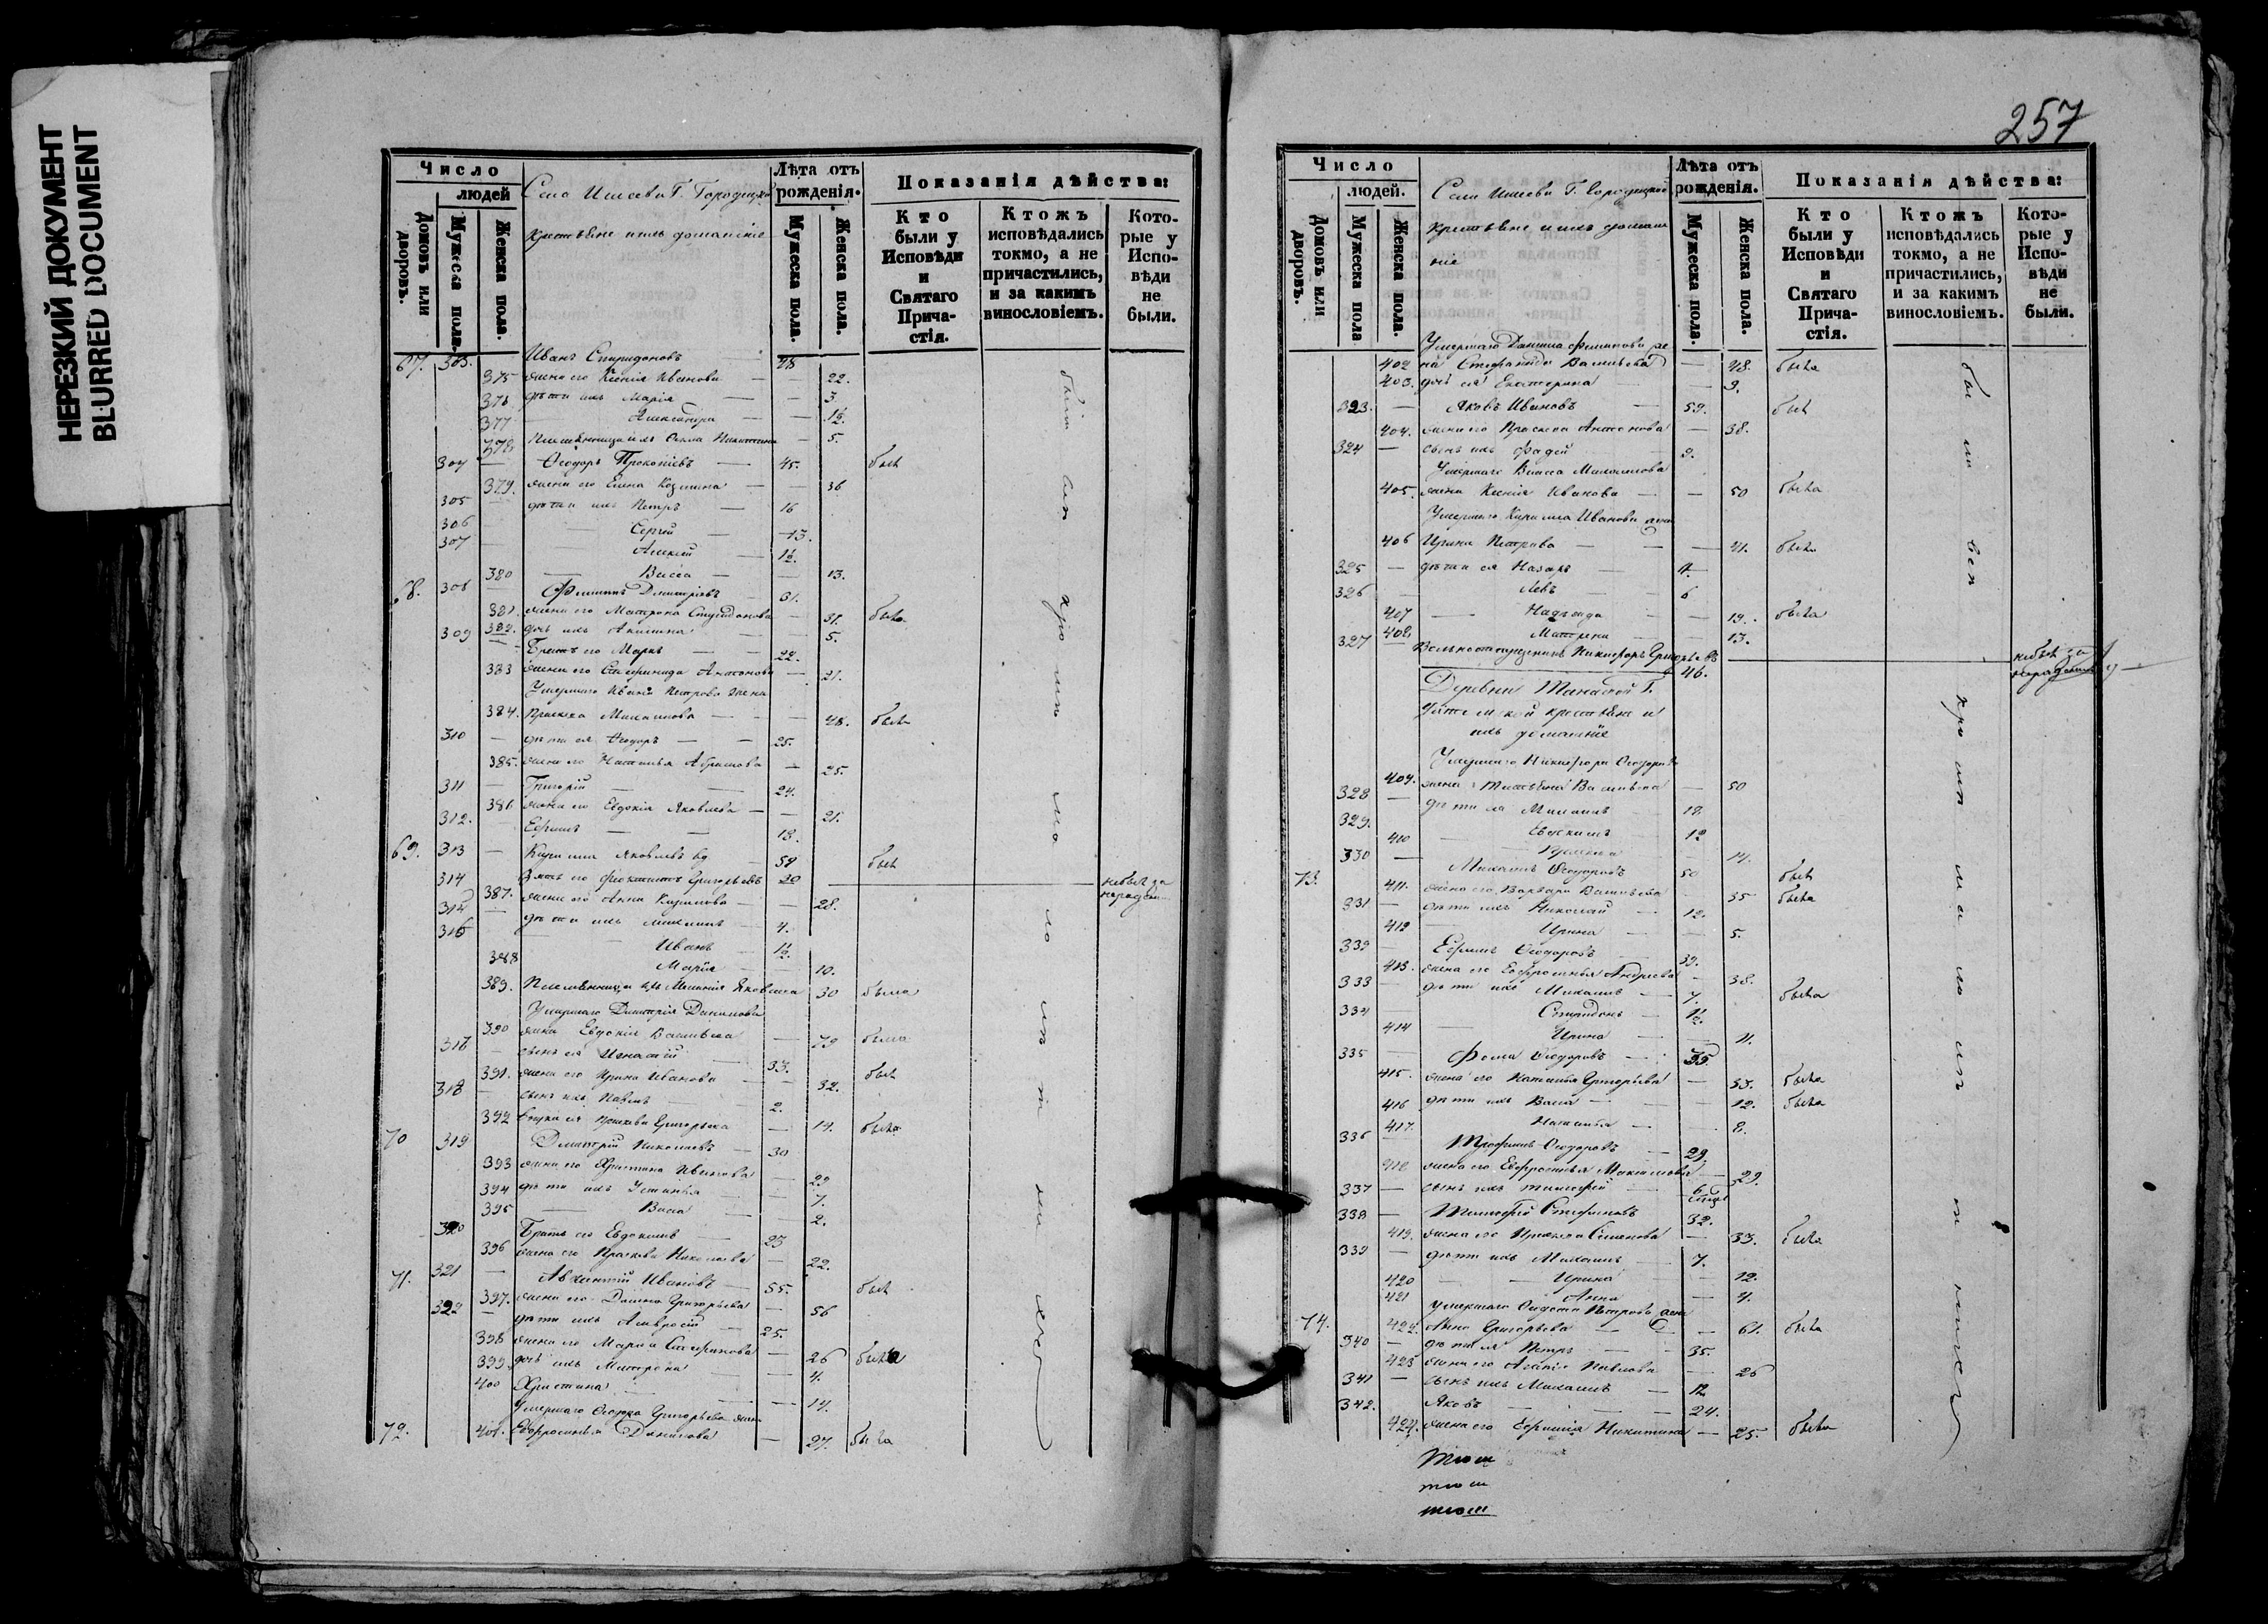 НЕРЕЗКИЙ ДОКУМЕНТ
BLURRED DOCUMENT
Число
людей
Домовъ или дворовъ.
Мужеска пола.
Женска пола.
Села Г. Городецка
крестьяне и ихъ домашніе
Лѣта отъ рожденія.
Мужеска пола.
Женска пола.
Показанія дѣйства:
Кто были у Исповѣди и Святаго Причастія.
Ктожъ исповѣдались токмо, а не причастились, и за какимъ винословіемъ.
Которые у Исповѣди не были.
67. 303. Иванъ Спиридоновъ 28
375 жена его Ксенія Иванова — — 22.
376 дѣти ихъ Марія — — 3.
377 Александра — — 1½.
378 Племянница ихъ Никитина — 5.
304 — Ѳеодоръ Прокопіевъ — 45. былъ
379. жена его Елена Козмина — — 36
305 дѣти ихъ Петръ — 16
306 Сергій — 13.
307 Алексій — 1½.
380 — Васса — — 13.
68. 308 — Филиппъ Димитріевъ — 31.
381. жена его Матрона Спиридонова — 31. была
382. дочь ихъ Акилина — — 5.
309 — Братъ его Маркъ — — 22.
383 жена его Стефанида Антонова — 21.
Умершаго Ивана Петрова жена
384. Параскева Михаилова — — 48. была
310 — дѣти ея Ѳеодоръ — — 25.
385. жена его Наталья Абрамова — 25.
311 — Григорій — — 24.
386 жена его Евдокія Яковлева — — 21.
312. Ефимъ — — 18.
69. 313 — Кирилла Яковлевъ вд — 59 былъ
314 Зять его Феоктистъ Григорьевъ 30 небылъ за нерадѣн
387. жена его Анна Кирилова — — 28.
314 — дѣти ихъ — 4.
315 Иванъ — 1½.
388 Марія — 10.
389. Племянница Яковлева 30 была
Умершаго Димитрія Данилова
390 жена Евдокія Васильева — 79 была
316 — сынъ ея Игнатій — 33. былъ
391. жена его Ирина Иванова — — 32.
318 — сынъ ихъ Павелъ — 2.
392 Григорьева — 14. была
70 319 Димитрій Николаевъ — 30
393 жена его Христина Иванова — 29
394 дѣти ихъ Устинья — — 7.
395 — Васса — — 2.
320 Братъ его Евдокимъ — 23
396 жена его Параскева Николаева — 22.
71. 321 — Авксентій Ивановъ — 55. былъ
397. жена его Домна Григорьева — 56
322 — дѣти ихъ Амвросій — 25.
398 жена его Марія Стефанова — 26 была
399. дочь ихъ Матрона — — 4.
400 Христина — — 14.
Умершаго Ѳеодора Григорьева жена
72. 401. Евфросинья Данилова — 27. была
были си кромѣ мало лѣтнихъ
257
Число
людей.
Домовъ или дворовъ.
Мужеска пола
Женска пола.
Села Г. Городецкой
крестьяне и ихъ домаш
ніе
Лѣта отъ рожденія.
Мужеска пола.
Женска пола.
Показанія дѣйства:
Кто были у Исповѣди и Святаго Причастія.
Ктожъ исповѣдались токмо, а не причастились, и за какимъ винословіемъ.
Которые у Исповѣди не были.
Умершаго Даніила Филипова же
402 на Стефанида Васильева — 48. была
403. дочь ея Екатерина — — 9.
323. — Яковъ Ивановъ — 59. былъ
404. жена его Параскева Антонова — 38.
324 — сынъ ихъ Фадей — 9.
Умершаго Власа Михаилова
405. жена Ксенія Иванова — — 50 была
Умершаго Кирилла Иванова жена
406 Ирина Петрова — — 41. была
325 — дѣти ея Назаръ — 11.
326 — Левъ — 6
407 — Надежда — — 19. была
408. Матрена — — 13.
327 Вольноотпущенникъ Никифоръ Григорьевъ 46. небылъ за нерадѣніем
Деревни Г.
крестьяне и
ихъ домашніе
Умершаго Никифора Ѳеодоров
409. жена Татьяна Васильева — 50
328 — дѣти ея Михаилъ — 18.
329. Евдокимъ — 12
410 — — 14.
330 — Михаилъ Ѳеодоровъ 50 былъ
73. 411. жена его Варвара Васильева — 35 была
331 — дѣти ихъ Николай — 12.
412 — Ирина — — 5.
332 — Ефимъ Ѳеодоровъ — 39.
413. жена его Евфросинья Андреева — 38. была
333 — дѣти ихъ Михаилъ — 7.
334 Спиридонъ — 1½.
414 — Ирина — — 11.
335 — Фома Ѳеодоровъ — 35.
415. жена его Наталья Григорьева — 33. была
416 дѣти ихъ Васса — — 12. была
417. Наталья — — 8.
336 — Трофимъ Ѳеодоровъ — 29.
418 жена его Евфросинья Максимова — 29.
337 — сынъ ихъ Тимофей — 6 мѣсяц
338 — Тимофей Стефановъ 32.
419. жена его Параскева Симонова — 33. была
339 — дѣти ихъ Михаилъ — 7.
420 — — Ирина — 12.
421 Анна — 4.
умершаго Ѳедота Петрова жена
74. 422. Анна Григорьева — — 61. была
340 — дѣти ея Петръ — — 35.
423 жена его Павлова — 26
341 — сынъ ихъ Михаилъ — 12
342. Яковъ — — 24.
424. жена его Никитина — 25. была
были вси кромѣ малолѣтнихъ